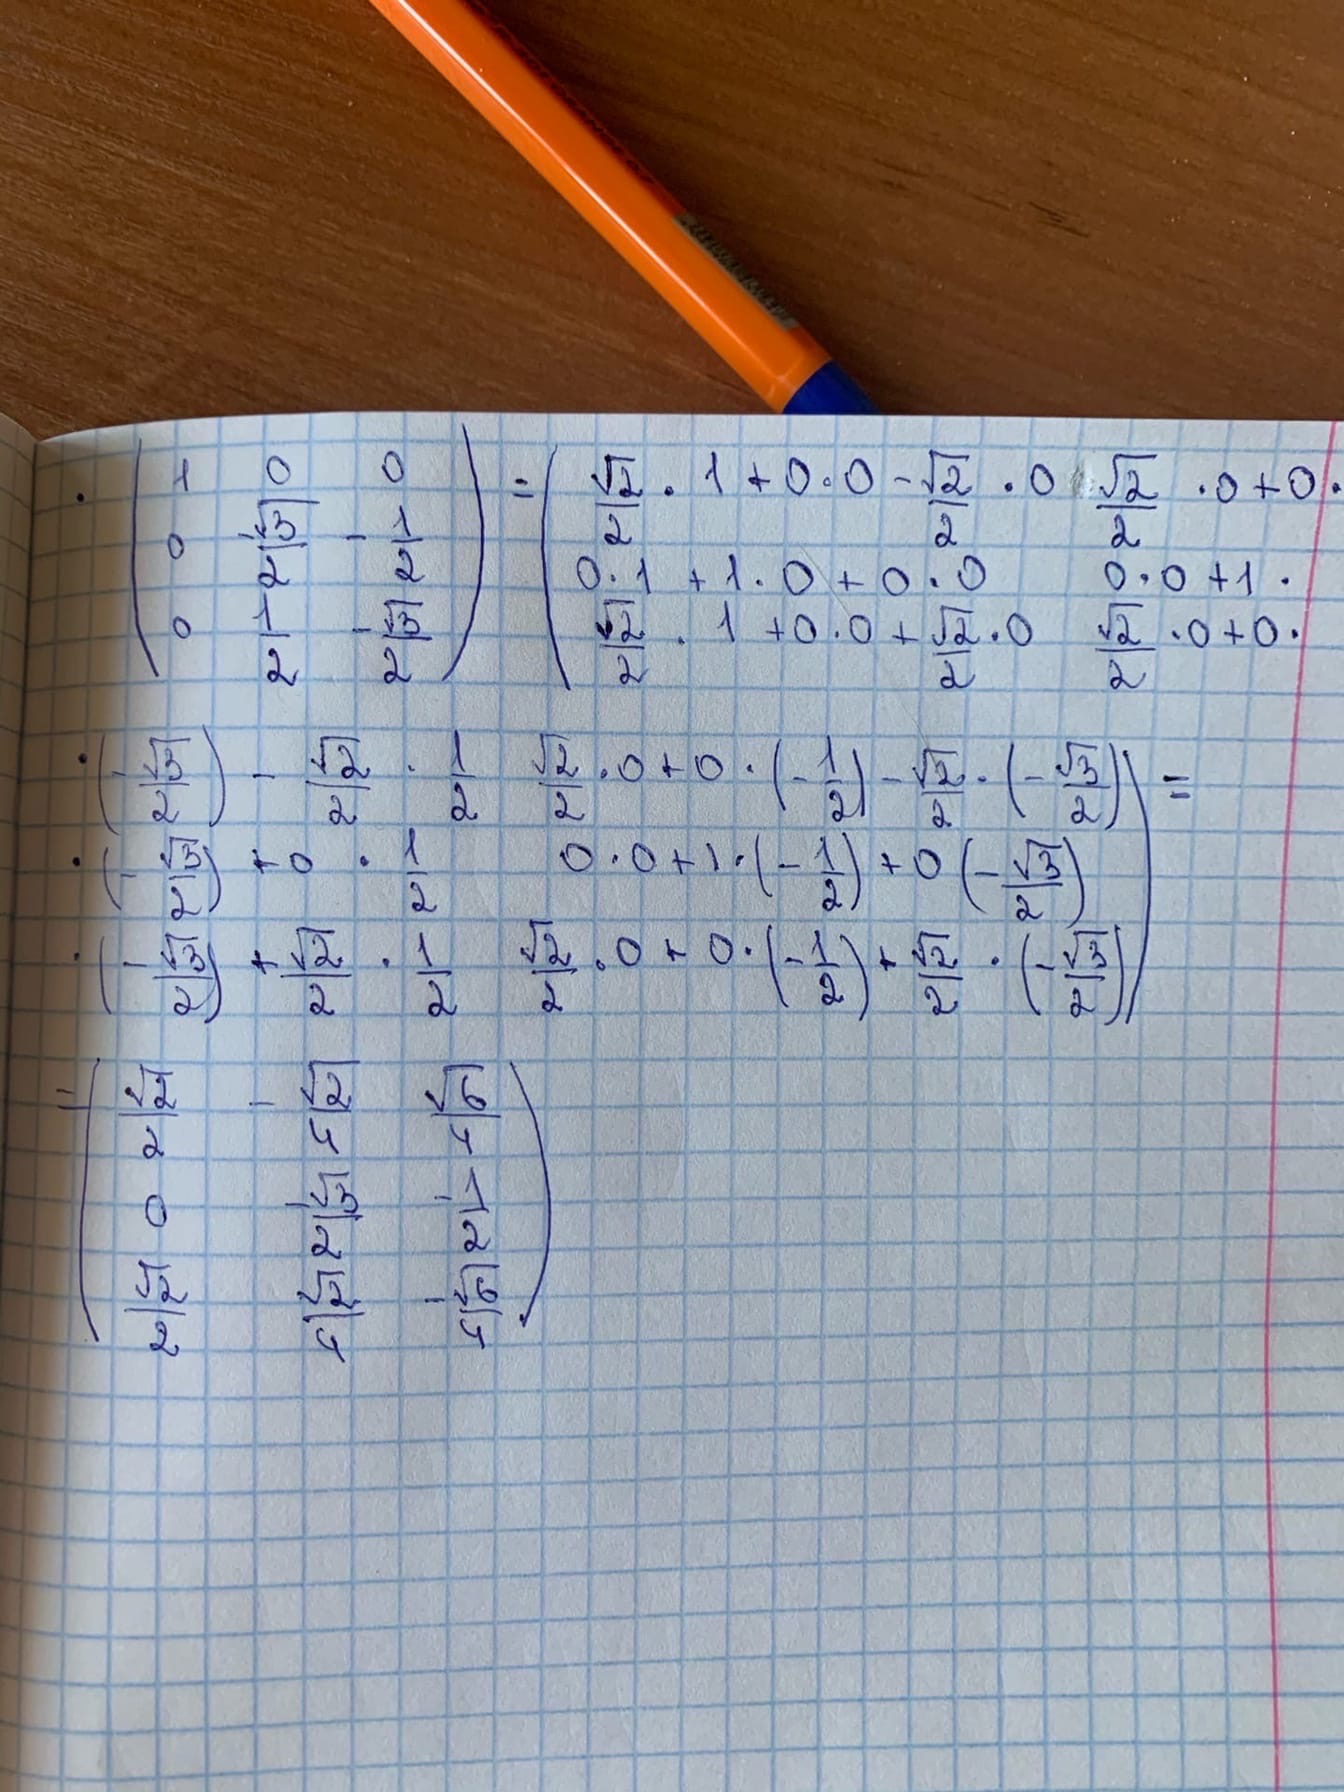 · ( 1 0 0 ) = ( √2/2 · 1 + 0 · 0 - √2/2 · 0 √2/2 · 0 + 0 ·
0 -√3/2 -1/2 0 · 1 + 1 · 0 + 0 · 0 0 · 0 + 1 ·
0 1/2 -√3/2 √2/2 · 1 + 0 · 0 + √2/2 · 0 √2/2 · 0 + 0 ·
· (-√3/2) - √2/2 · 1/2 √2/2 · 0 + 0 · (-1/2) - √2/2 · (-√3/2) ) =
· (-√3/2) + 0 · 1/2 0 · 0 + 1 · (-1/2) + 0 (-√3/2)
· (-√3/2) + √2/2 · 1/2 √2/2 · 0 + 0 · (-1/2) + √2/2 · (-√3/2)
= ( √2/2 - √2/4 √6/4 )
0 -√3/2 -1/2
√2/2 √2/4 -√6/4 .